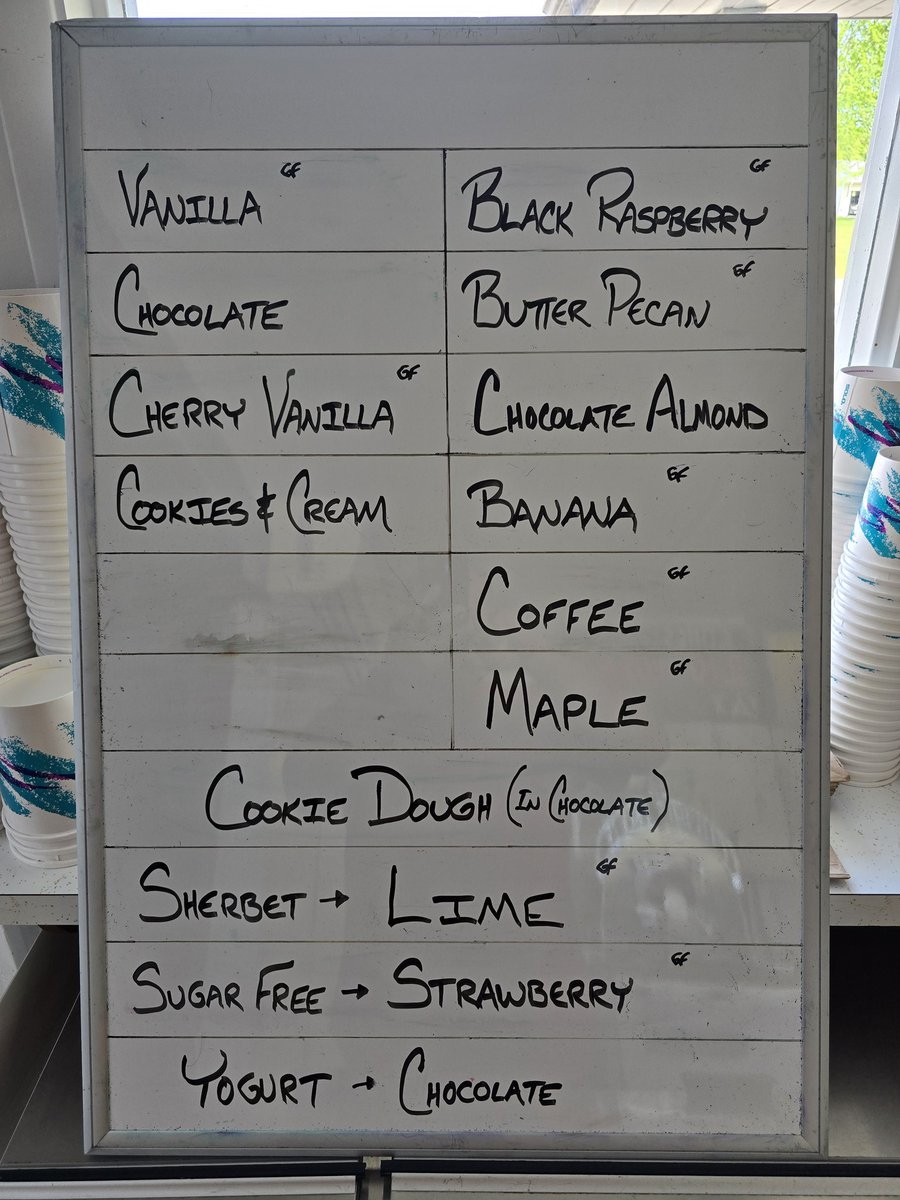 Vanilla GF
Black Raspberry GF
Chocolate
Butter Pecan GF
Cherry Vanilla GF
Chocolate Almond
Cookies & Cream
Banana GF
Coffee GF
Maple GF
Cookie Dough (in Chocolate)
Sherbet → Lime GF
Sugar Free → Strawberry GF
Yogurt → Chocolate
SOLO